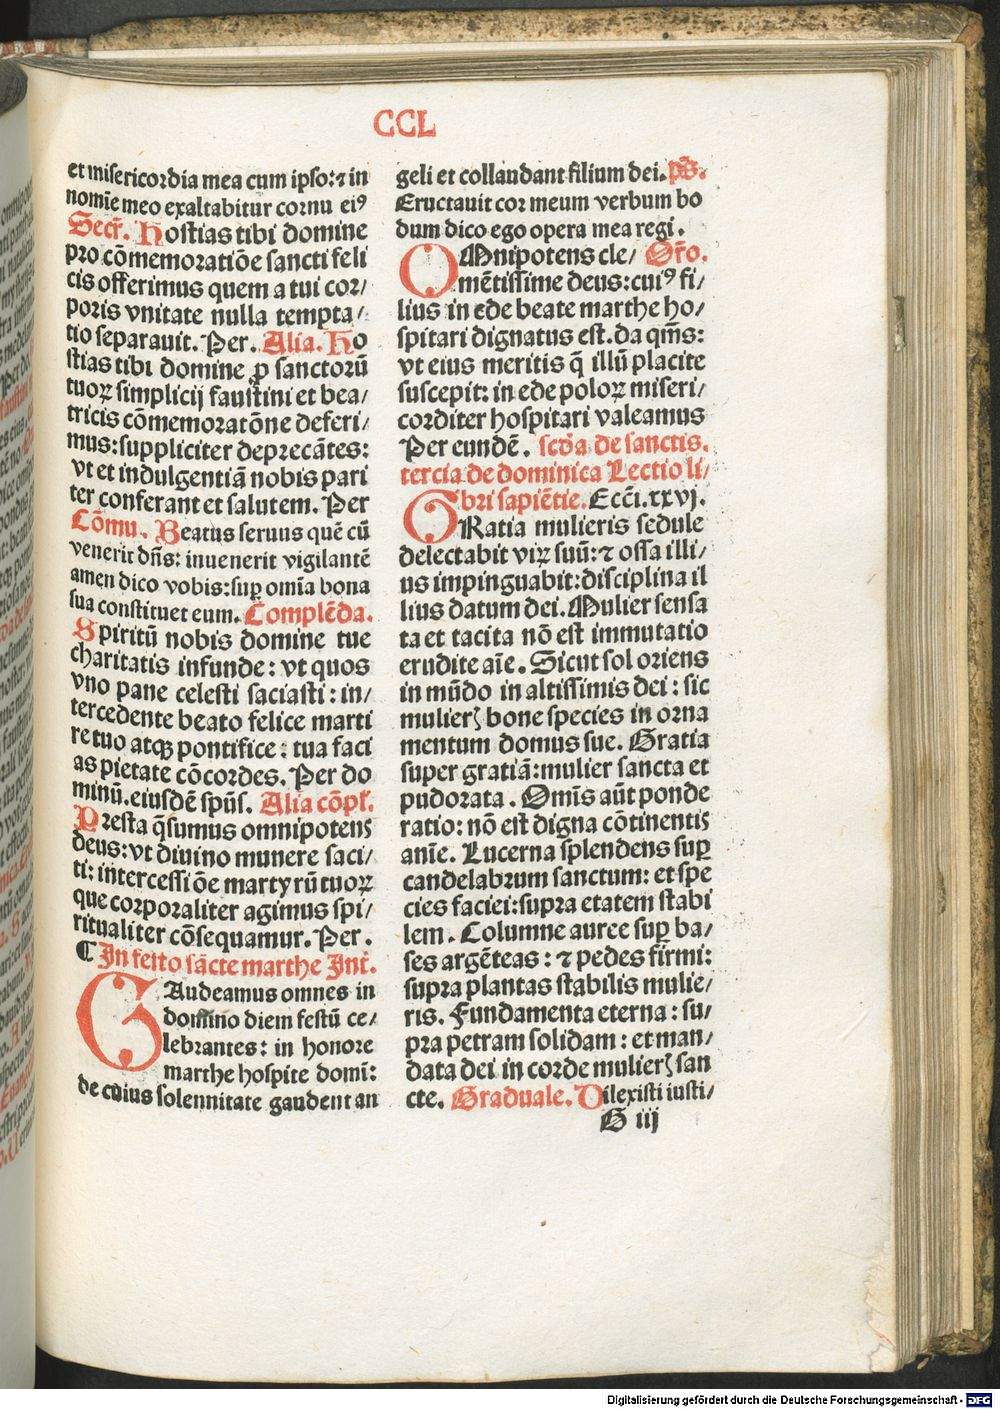 CCL
et misericordia mea cum ipso: ⁊ in
nomīe meo exaltabitur cornu eiꝰ
Secr̄. Hostias tibi domine
pro cōmemoratiōe sancti feli
cis offerimus quem a tui cor/
poris vnitate nulla tempta/
tio separauit. Per. Alia. Ho
stias tibi domine ꝓ sanctorū
tuoꝝ simplicij faustini et bea/
tricis cōmemoratōne deferi/
mus: suppliciter deprecātes:
vt et indulgentiā nobis pari
ter conferant et salutem. Per
Cōmu. Beatus seruus quē cū
venerit dn̄s: inuenerit vigilantē
amen dico vobis: suꝑ omīa bona
sua constituet eum. Complēda.
Spiritū nobis domine tue
charitatis infunde: vt quos
vno pane celesti saciasti: in/
tercedente beato felice marti
re tuo atqꝫ pontifice: tua faci
as pietate cōcordes. Per do
minū. eiusdē spūs. Alia cōpl̄.
Presta q̄sumus omnipotens
deus: vt diuino munere saci/
ti: intercessiōe martyrū tuoꝝ
que corporaliter agimus spi/
ritualiter cōsequamur. Per.
¶ In festo sācte marthe Int̄.
GAudeamus omnes in
domino diem festū ce/
lebrantes: in honore
marthe hospite domi:
de cuius solennitate gaudent an
geli et collaudant filium dei. ps̄.
Eructauit cor meum verbum bo
dum dico ego opera mea regi.
OMnipotens cle/ Or̄o.
mētissime deus: cuiꝰ fi/
lius in ede beate marthe ho/
spitari dignatus est. da qm̄s:
vt eius meritis q̄ illū placite
suscepit: in ede poloꝝ miseri/
corditer hospitari valeamus
Per eundē. scd̄a de sanctis.
tercia de dominica Lectio li/
bri sapiētie. Ecc̄i. xxvj.
GRatia mulieris sedule
delectabit viꝝ suū: ⁊ ossa illi/
us impinguabit: disciplina il
lius datum dei. Mulier sensa
ta et tacita nō est immutatio
erudite aīe. Sicut sol oriens
in mūdo in altissimis dei: sic
mulierꝭ bone species in orna
mentum domus sue. Gratia
super gratiā: mulier sancta et
pudorata. Omīs aūt ponde
ratio: nō est digna cōtinentis
anīe. Lucerna splendens suꝑ
candelabrum sanctum: et spe
cies faciei: supra etatem stabi
lem. Columne auree suꝑ ba/
ses argēteas: ⁊ pedes firmi:
supra plantas stabilis mulie/
ris. Fundamenta eterna: su/
pra petram solidam: et man/
data dei in corde mulierꝭ san
cte. Graduale. Dilexisti iusti/
G iij
Digitalisierung gefördert durch die Deutsche Forschungsgemeinschaft - DFG